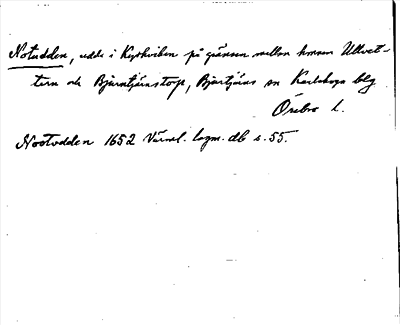 Notudden, udde i Kyrkviken på gränsen mellan hemman Ullvet-
tern och Björntjärnstorp, Bjurtjärns sn Karlskoga blg
Örebro l.
Nootudden 1652 Värml. lagm. db s. 55.